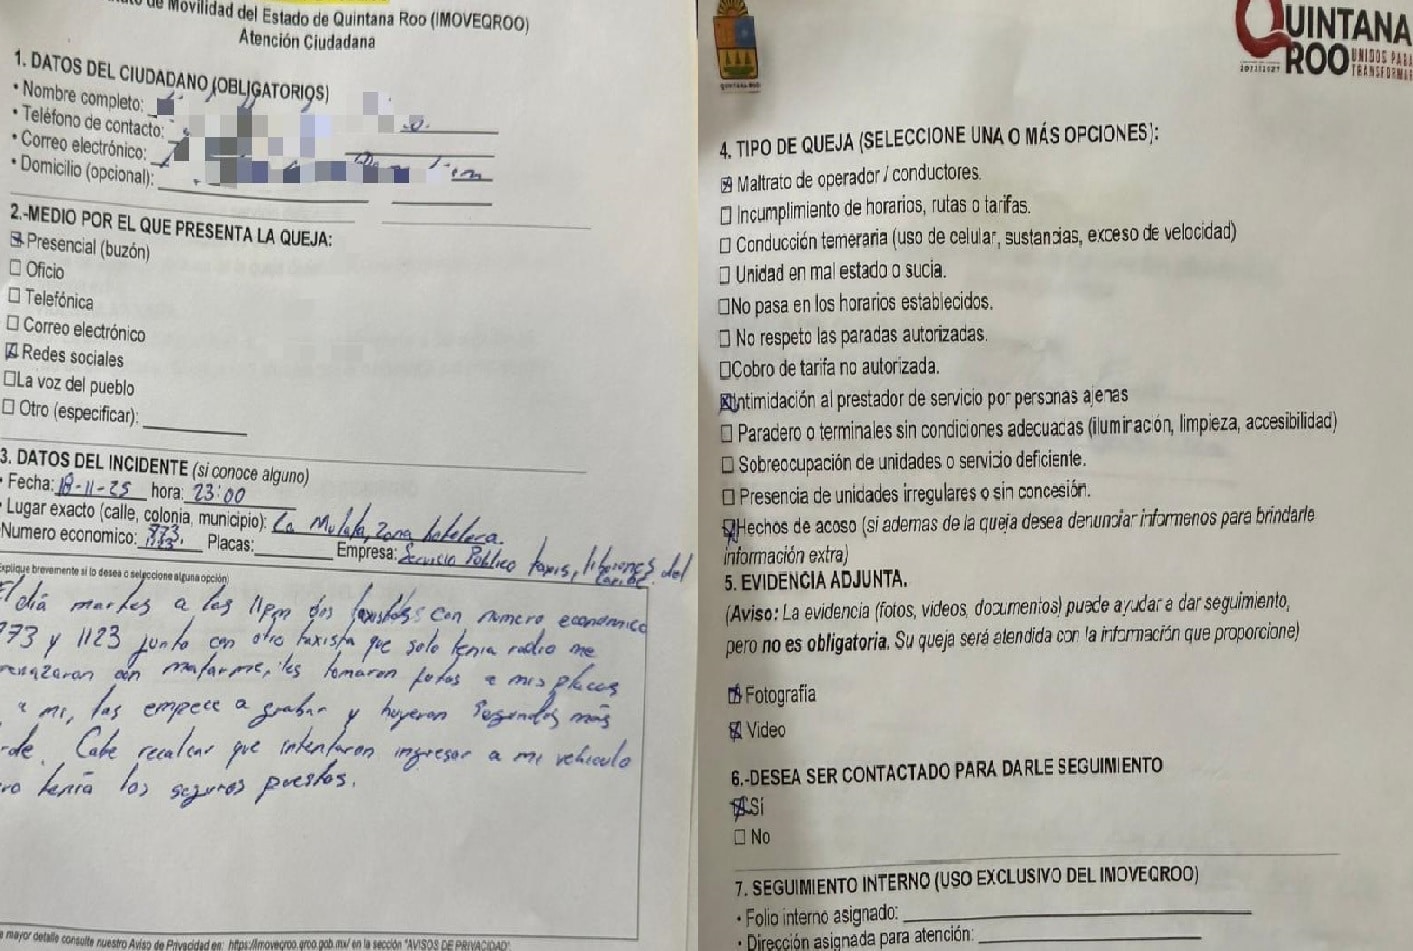 de Movilidad del Estado de Quintana Roo (IMOVEQROO)
Atención Ciudadana
1. DATOS DEL CIUDADANO (OBLIGATORIOS)
• Nombre completo:
• Teléfono de contacto:
• Correo electrónico:
• Domicilio (opcional):
2.-MEDIO POR EL QUE PRESENTA LA QUEJA:
Presencial (buzón)
Oficio
Telefónica
Correo electrónico
Redes sociales
La voz del pueblo
Otro (especificar):
3. DATOS DEL INCIDENTE (si conoce alguno)
• Fecha: 18-11-25 hora: 23:00
• Lugar exacto (calle, colonia, municipio): La Mulata, Zona hotelera.
Numero economico: 773, 1123 Placas: Empresa: Servicio Publico taxis, del Caribe.
Explique brevemente si lo desea o seleccione alguna opción)
El día martes a las 11pm dos taxistas: con numero economico
773 y 1123 junto con otro taxista que solo tenia radio me
con matarme, les tomaron fotos a mis placas
a mi, las empece a grabar y huyeron segundos más
Cabe recalcar que intentaron ingresar a mi vehiculo
tenía los seguros puestos.
mayor detalle consulte nuestro Aviso de Privacidad en: https://imoveqroo.qroo.gob.mx/ en la sección "AVISOS DE PRIVACIDAD"
QUINTANA ROO
QUINTANA
ROO
UNIDOS PARA
TRANSFORMAR
2022|2027
4. TIPO DE QUEJA (SELECCIONE UNA O MÁS OPCIONES):
Maltrato de operador / conductores.
Incumplimiento de horarios, rutas o tarifas.
Conducción temeraria (uso de celular, sustancias, exceso de velocidad)
Unidad en mal estado o sucia.
No pasa en los horarios establecidos.
No respeto las paradas autorizadas.
Cobro de tarifa no autorizada.
Intimidación al prestador de servicio por personas ajenas
Paradero o terminales sin condiciones adecuadas (iluminación, limpieza, accesibilidad)
Sobreocupación de unidades o servicio deficiente.
Presencia de unidades irregulares o sin concesión.
Hechos de acoso (si ademas de la queja desea denunciar informenos para brindarle
información extra)
5. EVIDENCIA ADJUNTA.
(Aviso: La evidencia (fotos, videos, documentos) puede ayudar a dar seguimiento,
pero no es obligatoria. Su queja será atendida con la información que proporcione)
Fotografia
Video
6.-DESEA SER CONTACTADO PARA DARLE SEGUIMIENTO
Sí
No
7. SEGUIMIENTO INTERNO (USO EXCLUSIVO DEL IMOVEQROO)
• Folio interno asignado:
• Dirección asignada para atención: